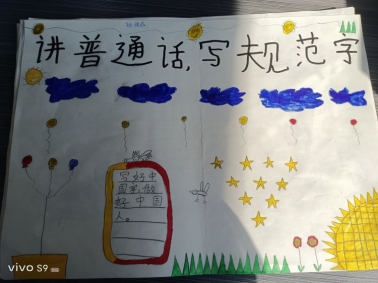 讲普通话,写规范字
写好中
国字,做
好中国
人。
vivo S9